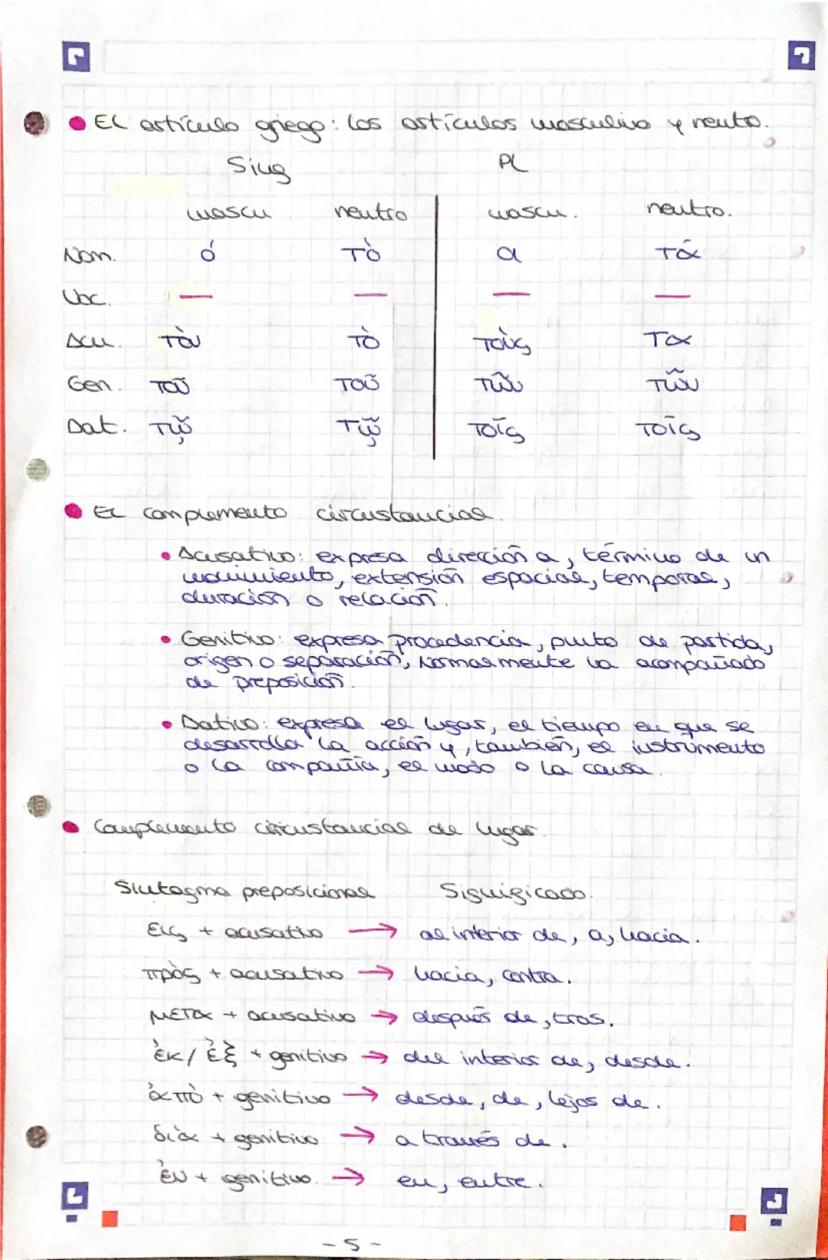 • El artículo griego: los artículos masculino y neutro.
Sing PL
mascu neutro mascu. neutro.
Nom. ó τὸ α τά
Voc. — — — —
Acu. τὸν τὸ τοὺς τα
Gen. τοῦ τοῦ τῶν τῶν
Dat. τῷ τῷ τοῖς τοῖς
• El complemento circustancial.
• Acusativo: expresa dirección a, término de un
movimiento, extensión espacial, temporal,
duración o relación.
• Genitivo: expresa procedencia, punto de partida,
origen o separación, Normalmente va acompañado
de preposición.
• Dativo: expresa el lugar, el tiempo en que se
desarrolla la acción y, también, el instrumento
o la compañía, el modo o la causa.
• Complemento circustancial de lugar.
Sintagma preposicional Significado.
εις + acusativo → al interior de, a, hacia.
πρὸς + acusativo → hacia, contra.
μετα + acusativo → después de, tras.
ἐκ/ ἐξ + genitivo → del interior de, desde.
ἀπὸ + genitivo → desde, de, lejos de.
διὰ + genitivo → a través de.
ἐν + genitivo. → en, entre.
- 5 -